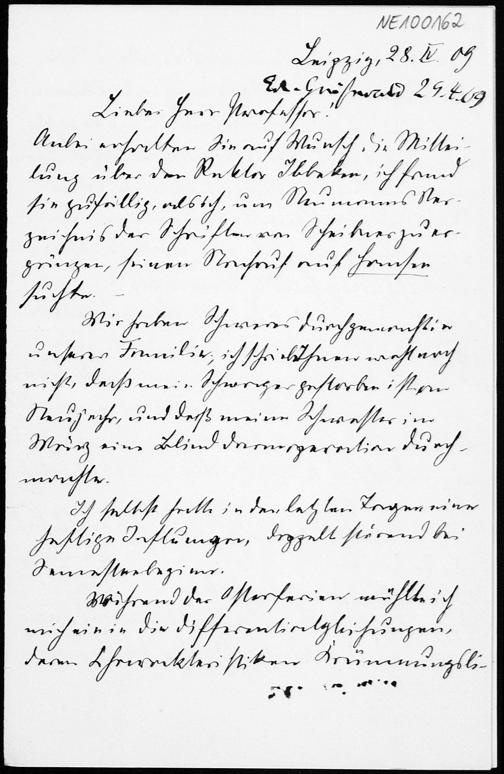 NE100162
Leipzig, 28. IV. 09
29.4.09
Lieber Herr Professor!
Anbei erhalten Sie auf Wunsch die Mittei-
lung über den Rektor Ibbeken, ich fand
sie zufällig, als ich, um Neumanns Ver-
zeichnis der Schriften von Scheibner zu er-
gänzen, seinen Nachruf auf Hansen
suchte. –
Wir haben Schweres durchgemacht in
unserer Familie, ich schrieb Ihnen wohl noch
nicht, daß mein Schwager gestorben ist am
Neujahr, und daß meine Schwester im
März eine Blinddarmoperation durch-
machte.
Ich selbst hatte in den letzten Tagen einen
heftigen, doppelt störend bei
Semesterbeginn.
Während der Osterferien wühlte ich
mich ein in die Differentialgleichungen,
deren Charakteristiken Krümmungsli-